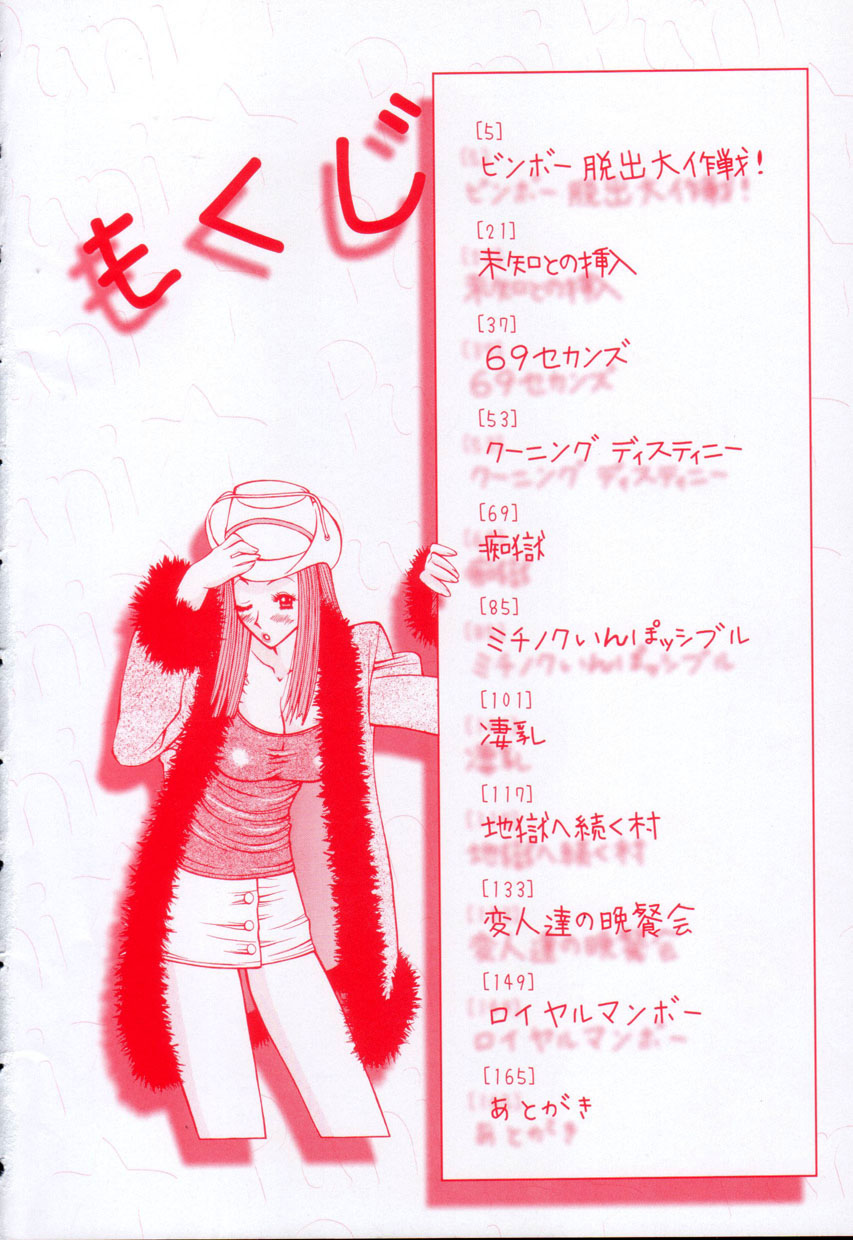 もくじ
[5]
ビンボー脱出大作戦!
[21]
未知との挿入
[37]
69セカンズ
[53]
クーニング ディスティニー
[69]
痴獄
[85]
ミチノクいんぽッシブル
[101]
凄乳
[117]
地獄へ続く村
[133]
変人達の晩餐会
[149]
ロイヤルマンボー
[165]
あとがき